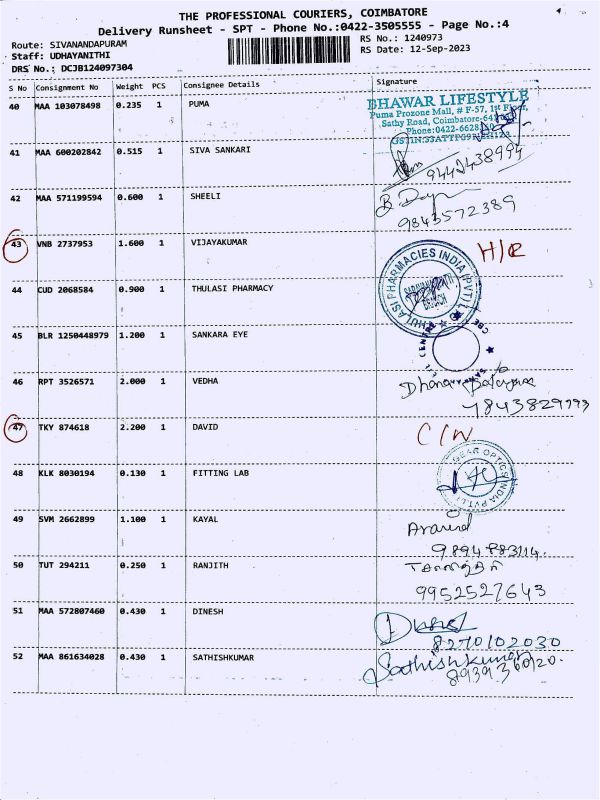 THE PROFESSIONAL COURIERS, COIMBATORE
Delivery Runsheet - SPT - Phone No.:0422-3505555 - Page No.:4
Route: SIVANANDAPURAM
Staff: UDHAYANITHI
DRS No.: DCJB124097304
RS No.: 1240973
RS Date: 12-Sep-2023
S No Consignment No Weight PCS Consignee Details Signature
40 MAA 103078498 0.235 1 PUMA
BHAWAR LIFESTYLE
Puma Prozone Mall, # F-57, 1st Floor,
Sathy Road, Coimbatore-
Phone:0422-6628
41 MAA 600202842 0.515 1 SIVA SANKARI
9442438994
42 MAA 571199594 0.600 1 SHEELI
9843572389
43 VNB 2737953 1.600 1 VIJAYAKUMAR
44 CUD 2068584 0.900 1 THULASI PHARMACY
THULASI PHARMACIES INDIA (PVT) L
BRANCH
45 BLR 1250448979 1.200 1 SANKARA EYE
46 RPT 3526571 2.000 1 VEDHA
47 TKY 874618 2.200 1 DAVID
48 KLK 8030194 0.130 1 FITTING LAB
GEAR OPTICS INDIA PVT.LTD
49 SVM 2662899 1.100 1 KAYAL
Aravind
50 TUT 294211 0.250 1 RANJITH
9952527643
51 MAA 572807460 0.430 1 DINESH
8270102030
52 MAA 861634028 0.430 1 SATHISHKUMAR
Sathishkumar
8939360120.